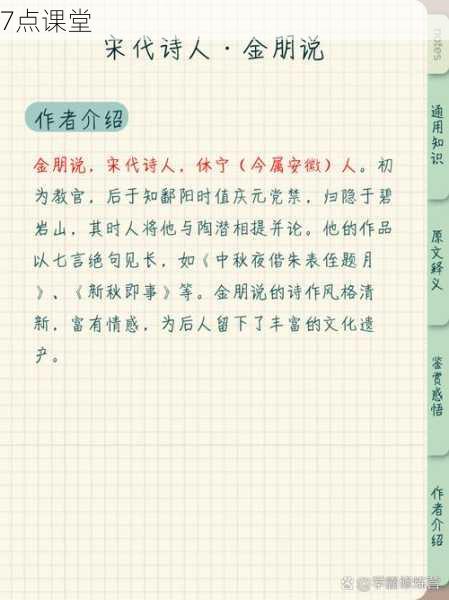 7点课堂
宋代诗人·金朋说
notes
作者介绍
金朋说，宋代诗人，休宁（今属安徽）人。初
为教官，后于知鄱阳时值庆元党禁，归隐于碧
岩山，其时人将他与陶潜相提并论。他的作品
以七言绝句见长，如《中秋夜偕朱表侄题月
》、《新秋即事》等。金朋说的诗作风格清
新，富有情感，为后人留下了丰富的文化遗
产。
通用知识
原文释义
鉴赏感悟
作者介绍